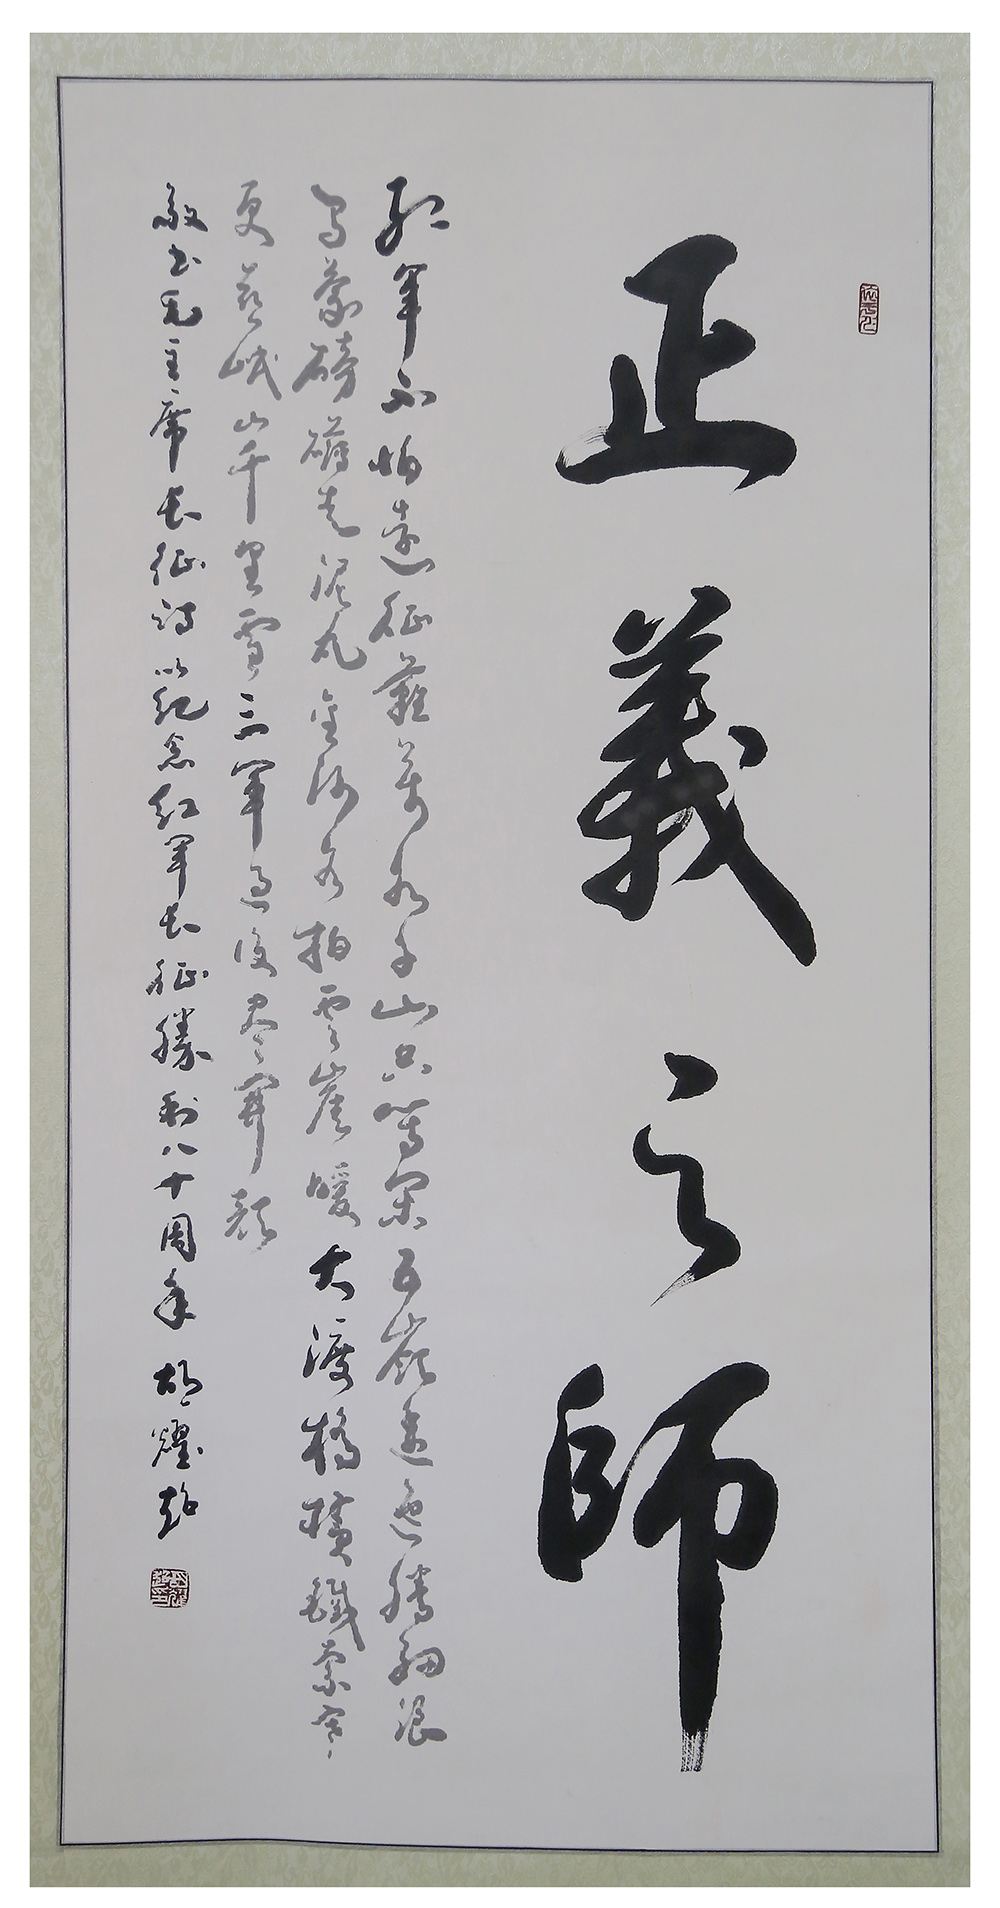 正義之師
紅軍不怕遠征難萬水千山只等閑五嶺逶迤騰細浪
烏蒙磅礴走泥丸金沙水拍雲崖暖大渡橋橫鐵索寒
更喜岷山千里雪三軍過後尽開顏
敬书毛主席长征詩以紀念红軍长征勝利八十周年 胡耀